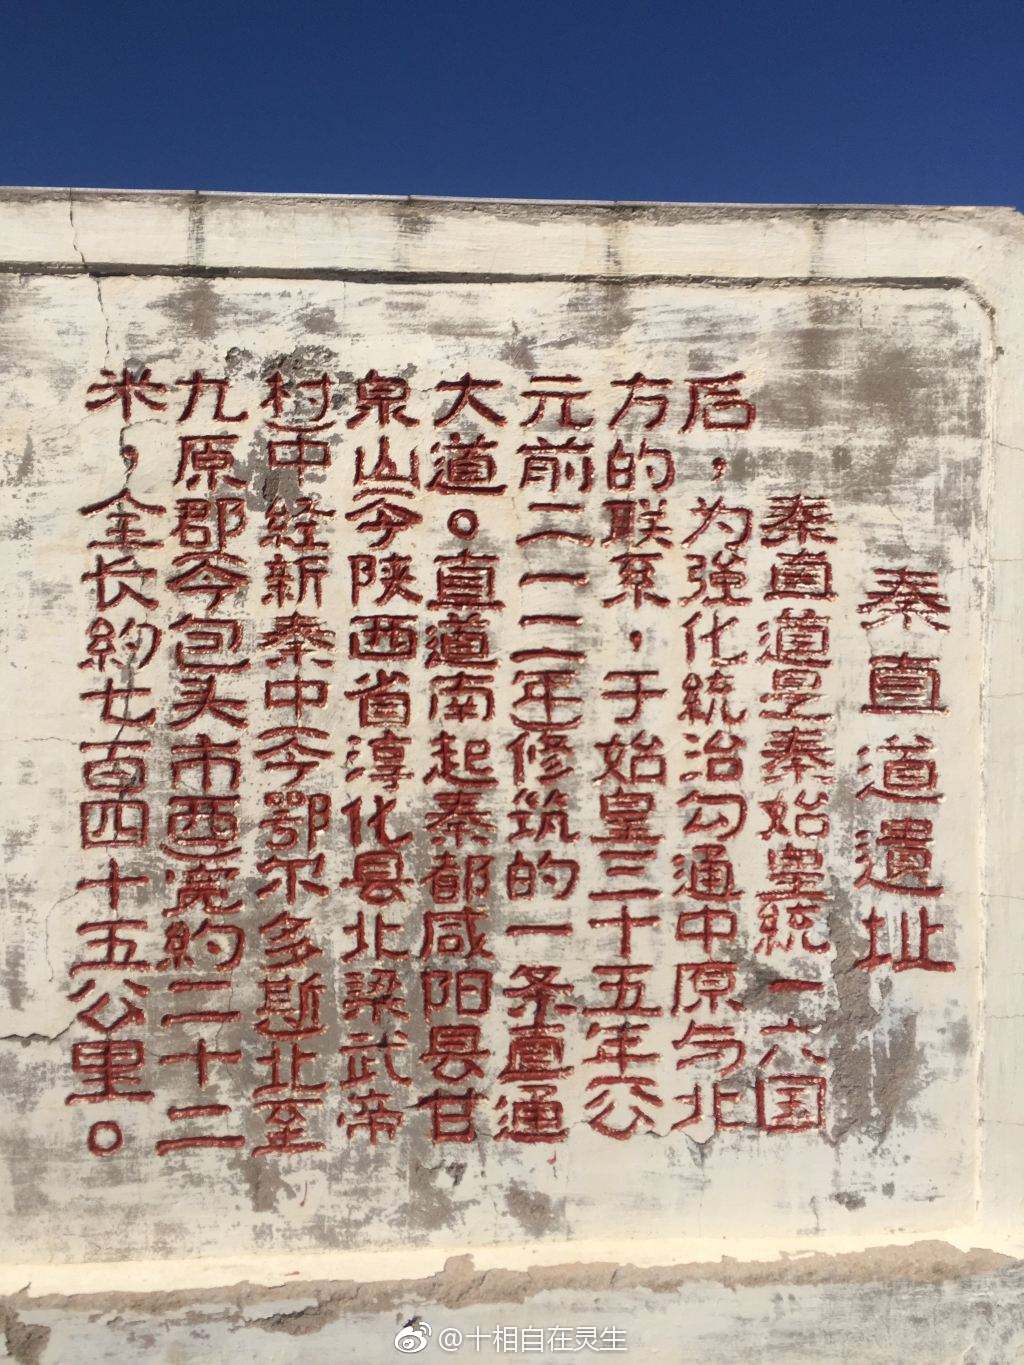 秦直道遺址
秦直道是秦始皇統一六国
后，为强化統治勾通中原与北
方的联系，于始皇三十五年(公
元前二一二年)修筑的一条直通
大道。直道南起秦都咸阳县甘
泉山(今陕西省淳化县北梁武帝
村)中经新秦中(今鄂尔多斯)北至
九原郡(今包头市西)宽约二十二
米，全长約七百四十五公里。
@十相自在灵生